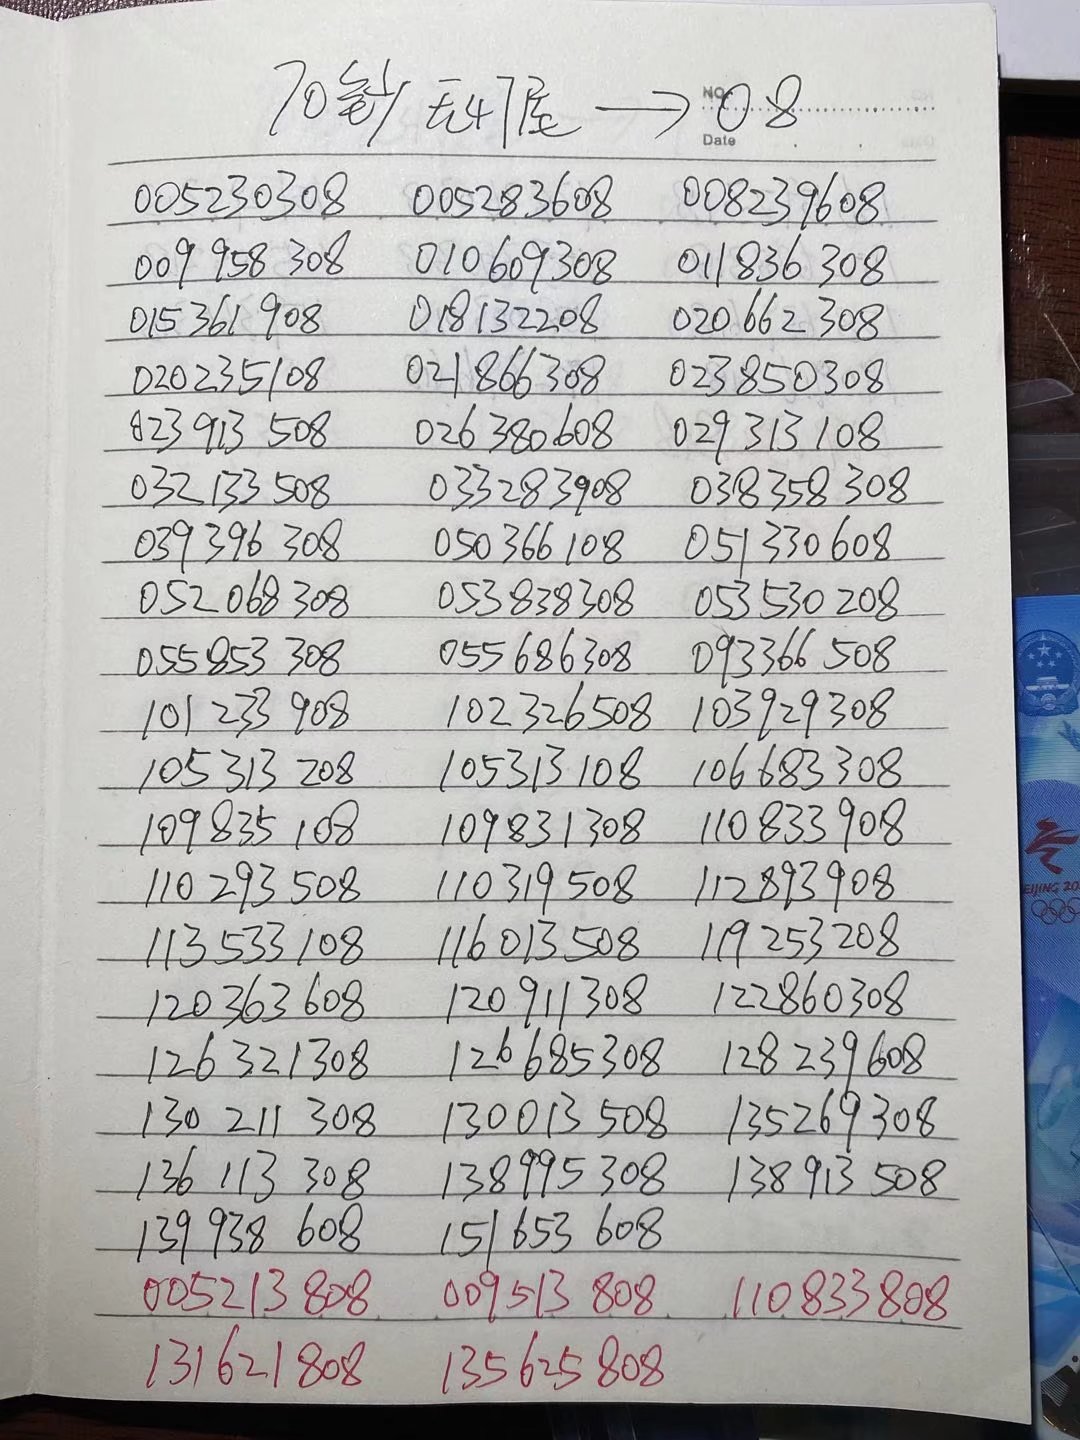 70钞无47尾→08
NO.
Date
005230308 005283608 008239608
009958308 010609308 011836308
015361908 018132208 020662308
020235108 021866308 023850308
023913508 026380608 029313108
032133508 033283908 038358308
039396308 050366108 051330608
052068308 053838308 053530208
055853308 055686308 093366508
101233908 102326508 103929308
105313208 105313108 106683308
109835108 109831308 110833908
110293508 110319508 112893908
113533108 116013508 119253208
120363608 120911308 122860308
126321308 126685308 128239608
130211308 130013508 135269308
136113308 138995308 138913508
139938608 151653608
005213808 009513808 110833808
131621808 135625808
EIJING 20